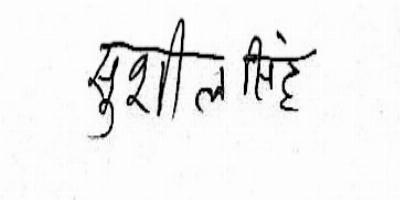 सुशील सिंह